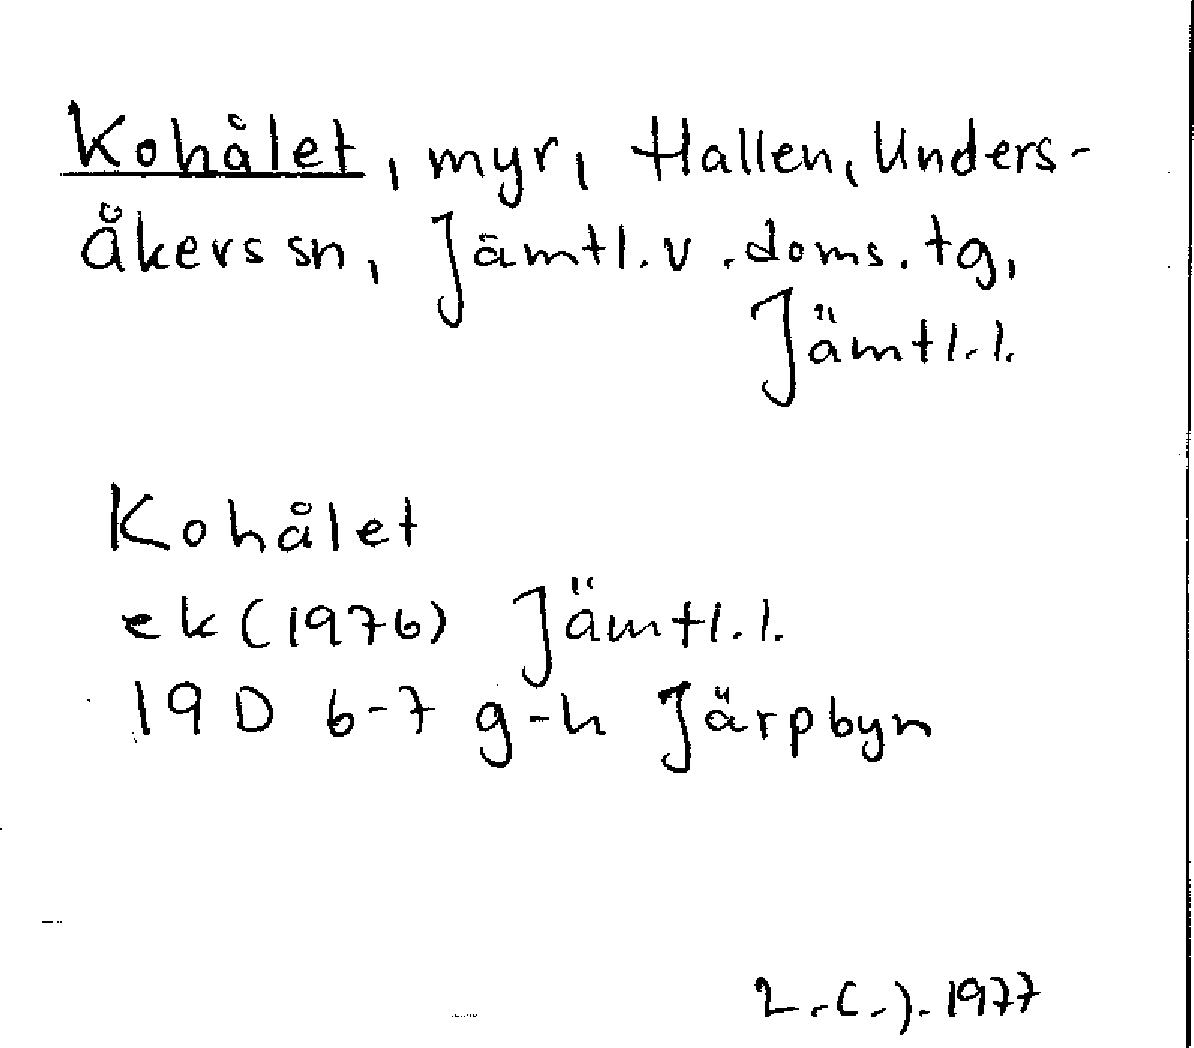 Kohålet, myr, Hallen, Unders-
åkers sn, Jämtl. v. doms. tg,
Jämtl. l.
Kohålet
ek (1976) Jämtl. l.
19 D 6-7 g-h Järpbyn
1977